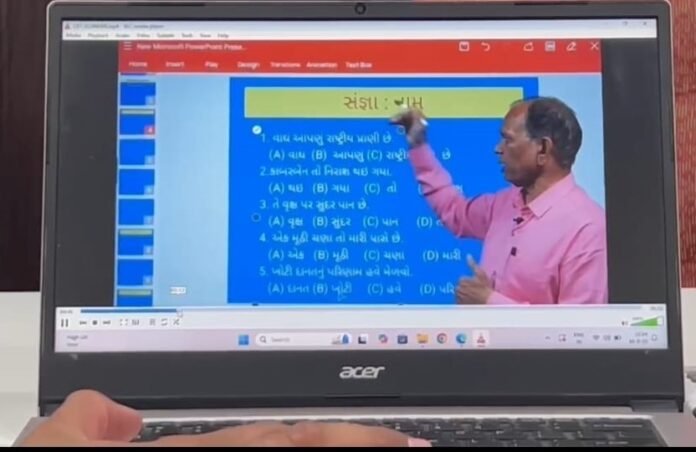 Media Playback Audio Video Subtitle Tools View Help
New Microsoft PowerPoint Prese...
Home Insert Play Design Transitions Animation Text Box
સંજ્ઞા : નામ
1. વાઘ આપણુ રાષ્ટ્રીય પ્રાણી છે
(A) વાઘ (B) આપણુ (C) રાષ્ટ્રી છે
2. કાબરબેન તો નિરાશ થઇ ગયા.
(A) થઇ (B) ગયા (C) તો
3. તે વૃક્ષ પર સુંદર પાન છે.
(A) વૃક્ષ (B) સુંદર (C) પાન (D) તે
4. એક મૂઠી ચણા તો મારી પાસે છે.
(A) એક (B) મૂઠી (C) ચણા (D) મારી
5. ખોટી દાનતનું પરિણામ હવે મેળવો.
(A) દાનત (B) ખોટી (C) હવે (D) પરિ
Search
acer